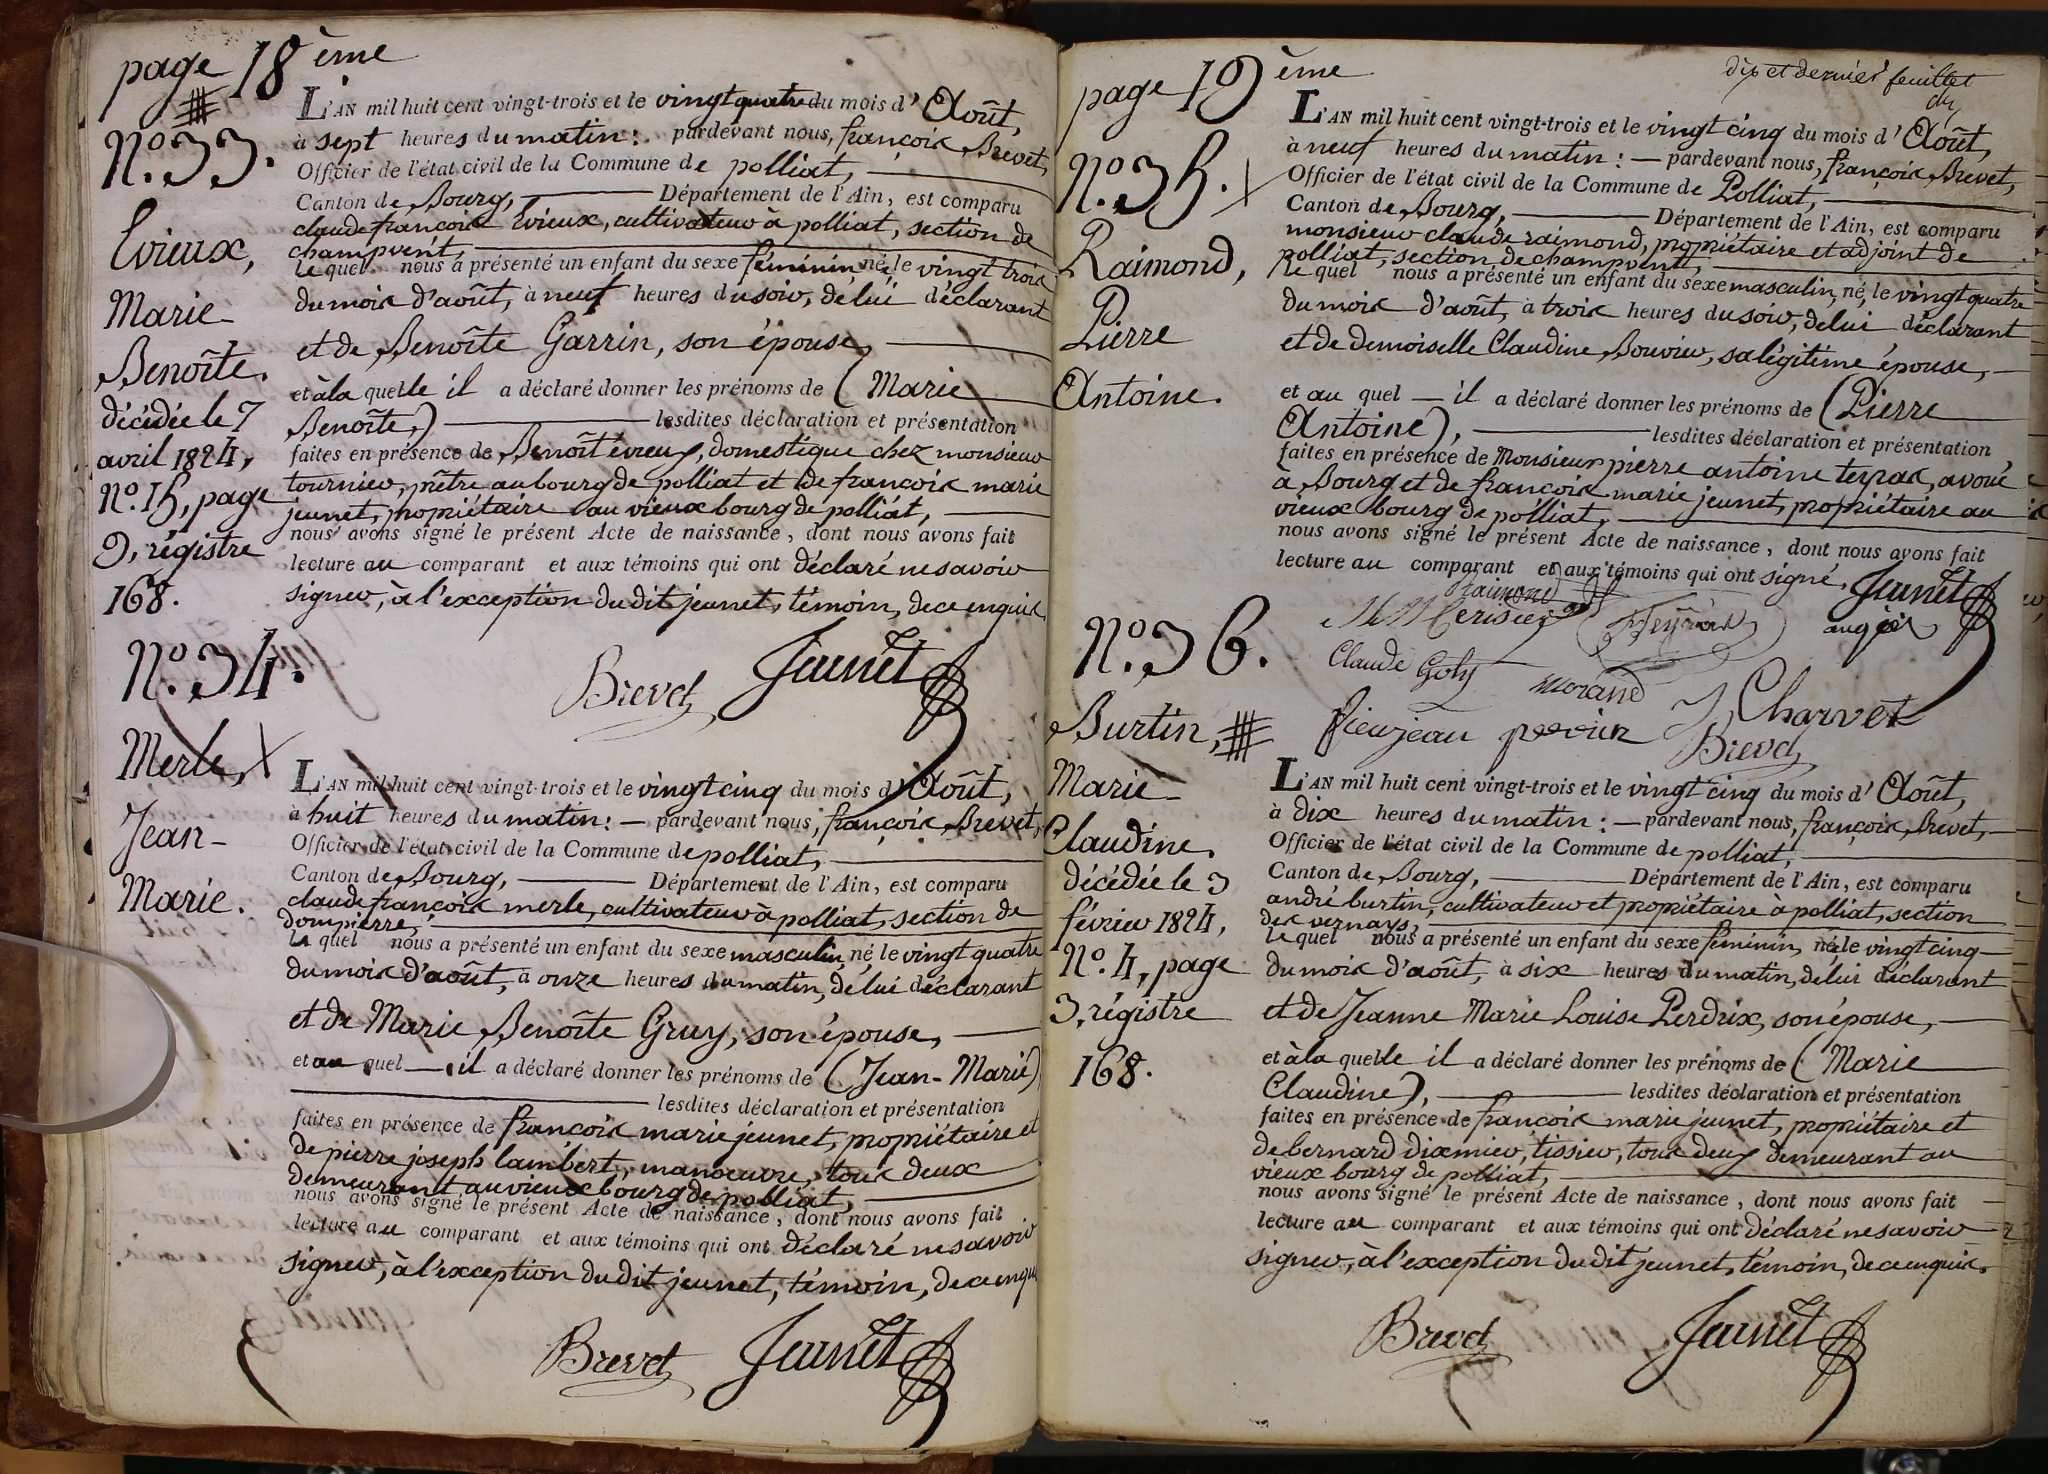 page 18 ème
N.º 33.
Evieux,
Marie-
Benoîte.
décédée le 7
avril 1824,
N.º 15, page
9, régistre
168.
L'AN mil huit cent vingt-trois et le vingt quatre du mois d' Août,
à sept heures du matin: pardevant nous, françois Brevet,
Officier de l'état civil de la Commune de polliat,
Canton de Bourg, Département de l'Ain, est comparu
claude françois Evieux, cultivateur à polliat, section de
champvent,
le quel nous a présenté un enfant du sexe féminin né, le vingt trois
du mois d'août, à neuf heures du soir, de lui déclarant
et de Benoîte Garrin, son épouse,
et à la quelle il a déclaré donner les prénoms de (Marie
Benoîte,) lesdites déclaration et présentation
faites en présence de Benoît évieux, domestique chez monsieur
tournier, prêtre au bourg de polliat et de françois marie
jeunet, propriétaire au vieux bourg de polliat,
nous avons signé le présent Acte de naissance, dont nous avons fait
lecture au comparant et aux témoins qui ont déclaré ne savoir
signer, à l'exception du dit jeunet, témoin, de ce enquis
Brevet Jeunet
N.º 34.
Merle,
Jean-
Marie.
L'AN mil huit cent vingt-trois et le vingt cinq du mois d' Août,
à huit heures du matin: — pardevant nous, françois Brevet,
Officier de l'état civil de la Commune de polliat,
Canton de Bourg, Département de l'Ain, est comparu
claude françois merle, cultivateur à polliat, section de
dompierre,
le quel nous a présenté un enfant du sexe masculin né le vingt quatre
du mois d'août, à onze heures du matin, de lui déclarant
et de Marie Benoîte Gruy, son épouse,
et au quel — il a déclaré donner les prénoms de (Jean-Marie)
lesdites déclaration et présentation
faites en présence de françois marie jeunet, propriétaire et
de pierre joseph lambert, manoeuvre, tous deux
demeurant au vieux bourg de polliat,
nous avons signé le présent Acte de naissance, dont nous avons fait
lecture au comparant et aux témoins qui ont déclaré ne savoir
signer, à l'exception du dit jeunet, témoin, de ce enquis
Brevet Jeunet
page 19 ème
dix et dernier feuillet
N.º 35.
Raimond,
Pierre
Antoine.
L'AN mil huit cent vingt-trois et le vingt cinq du mois d' Août,
à neuf heures du matin: — pardevant nous, françois Brevet,
Officier de l'état civil de la Commune de Polliat,
Canton de Bourg, Département de l'Ain, est comparu
monsieur claude raimond, propriétaire et adjoint de
polliat, section de champvent,
le quel nous a présenté un enfant du sexe masculin, né, le vingt quatre
du mois d'août, à trois heures du soir, de lui déclarant
et de demoiselle Claudine Bouvier, sa légitime épouse,
et au quel — il a déclaré donner les prénoms de (Pierre
Antoine), lesdites déclaration et présentation
faites en présence de Monsieur pierre antoine avoué
à Bourg et de françois marie jeunet, propriétaire au
vieux bourg de polliat,
nous avons signé le présent Acte de naissance, dont nous avons fait
lecture au comparant et aux témoins qui ont signé. Jeunet
Raimond
Claude Goly morand
Charvet
Brevet
N.º 36.
Burtin,
Marie-
Claudine.
décédée le 3
février 1824,
N.º 4, page
3, régistre
168.
L'AN mil huit cent vingt-trois et le vingt cinq du mois d' Août,
à dix heures du matin: — pardevant nous, françois Brevet,
Officier de l'état civil de la Commune de polliat,
Canton de Bourg, Département de l'Ain, est comparu
andré burtin, cultivateur et propriétaire à polliat, section
des vernays,
le quel nous a présenté un enfant du sexe féminin, né, le vingt cinq
du mois d'août, à six heures du matin, de lui déclarant
et de Jeanne Marie Louise Perdrix, son épouse,
et à la quelle il a déclaré donner les prénoms de (Marie
Claudine), lesdites déclaration et présentation
faites en présence de françois marie jeunet, propriétaire et
de bernard dixmier, tissier, tous deux demeurant au
vieux bourg de polliat,
nous avons signé le présent Acte de naissance, dont nous avons fait
lecture au comparant et aux témoins qui ont déclaré ne savoir
signer, à l'exception du dit jeunet, témoin, de ce enquis.
Brevet Jeunet